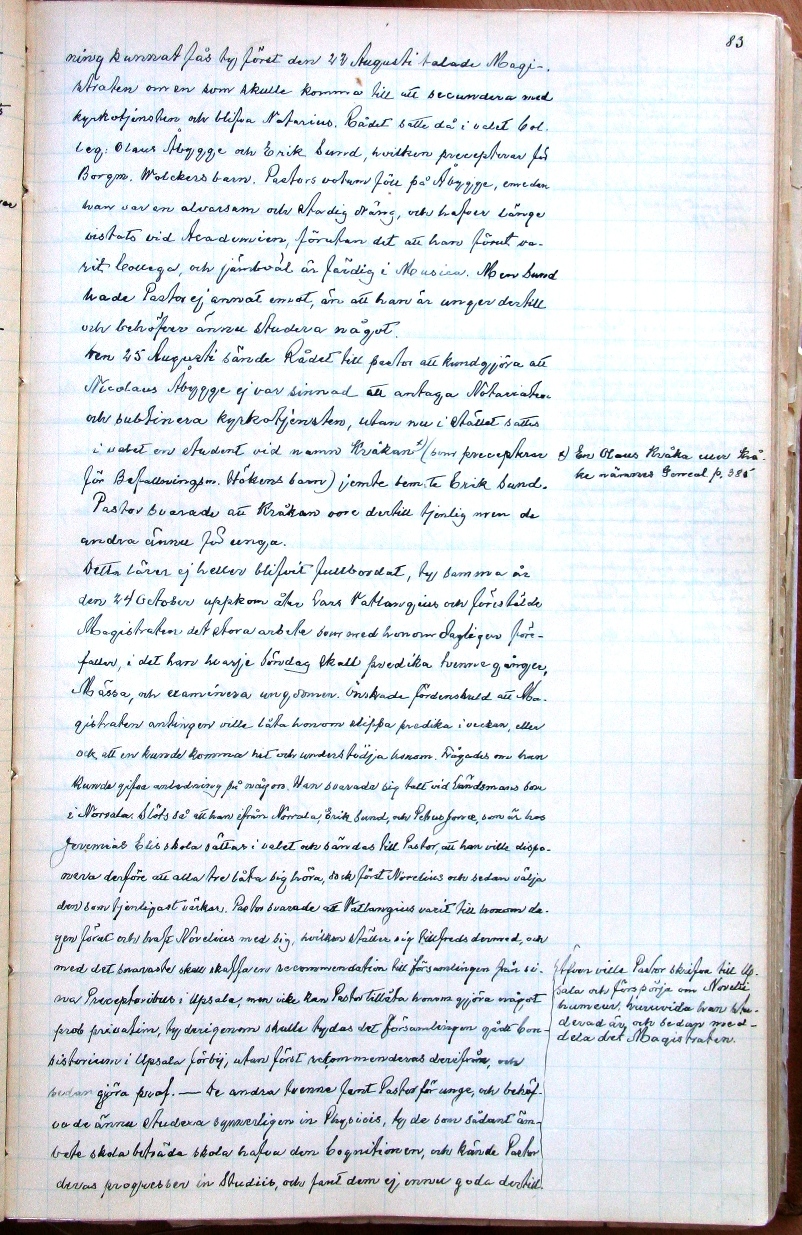 83
ning kunnat fås ty först den 22 Augusti talade Magi-
straten om en som skulle komma till att secundera med
kyrkotjensten och blifva Notarius. Rådet satte då i valet Col.
leg: Olaus Åbygge och Erik Sund, hvilken preceptorar för
Borgm. Wolckers barn. Pastors votum föll på Åbygge, emedan
han var en alvarsam och stadig dräng, och hafver länge
vistats vid Academien, förutan det att han förut va-
rit Collega, och jämväl är färdig i Musica. Men Sund
hade Pastor ej annat emot, än att han är unger dertill
och behöfver ännu studera något.
Den 25 Augusti sände Rådet till pastor att kundgjöra att
Nicolaus Åbygge ej var sinnad att antaga Notariatet
och subtinera kyrkotjensten, utan nu i stället sattes
i valet en student vid namn Kråkan x) (som precepterar
för Befallningsm. Hökens barn) jemte bem.te Erik Sund.
Pastor svarade att Kråkan vore dertill tjenlig men de
andra ännu för unga.
x) En Olaus Kråka eller Krå-
ke nämnes Gereal p. 385
Detta lärer ej heller blifvit fullbordat, ty samma år
den 24 October uppkom åter Lars Vatlangius och föreställde
Magistraten det stora arbete som med honom dagligen före-
faller, i det han hvarje söndag skall predika tvenne gånger,
Mässa, och examinera ungdomen. Önskade fördenskuld att Ma-
gistraten antingen ville låta honom slippa predika i veckan, eller
ock att en kunde komma hit och understödja honom. Frågades om han
kunde gifva anledning på någon. Han svarade sig talt vid Ländsmans son
i Norrala. Slöts så att han ifrån Norrala, Erik Sund, och Petrus Jonæ, som är hos
Jeremias Elis skola sättas i valet och sändas till Pastor, att han ville dispo-
nera derföre att alla tre låta sig höra, dock först Norelius och sedan välja
den som tjenligast värkar. Pastor svarade att Vatlangius varit till honom da-
gen förut och haft Norelius med sig, hvilken ställer sig tillfreds dermed, och
med det snaraste skall skaffa en recommendation till församlingen från si-
na Preceptoribus i Upsala, men icke kan Pastor tillåta honom gjöra något
prob privatim, ty derigenom skulle tydas det församlingen gådt Con-
sistorium i Upsala förbij, utan först rekommenderas derifrån, och
sedan gjöra prof. — De andra tvenne fant Pastor för unge, och behöf-
vade ännu studera synnerligen in Physicis, ty de som sådant äm-
bete skola beträda skola hafva den Cognitionen, och kände Pastor
deras progresser in Studiis, och fant dem ej ennu goda dertill.
Äfven ville Pastor skrifva till Up-
sala och förspörja om Norelii
humeur, huruvida han stu-
derad är, och sedan med-
dela det Magistraten.